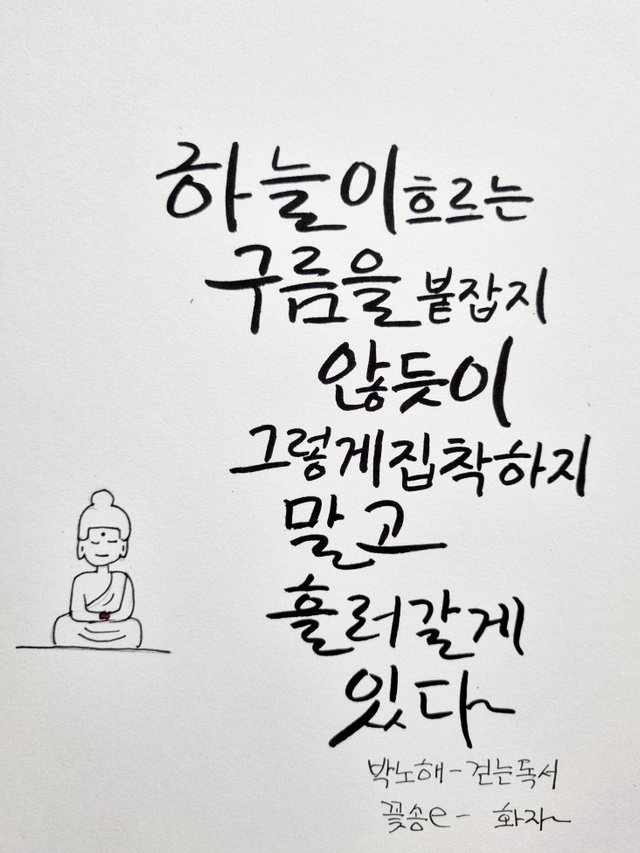 하늘이 흐르는
구름을 붙잡지
않듯이
그렇게 집착하지
말고
흘러갈게
있다~
박노해-걷는독서
꽃송e- 화자~